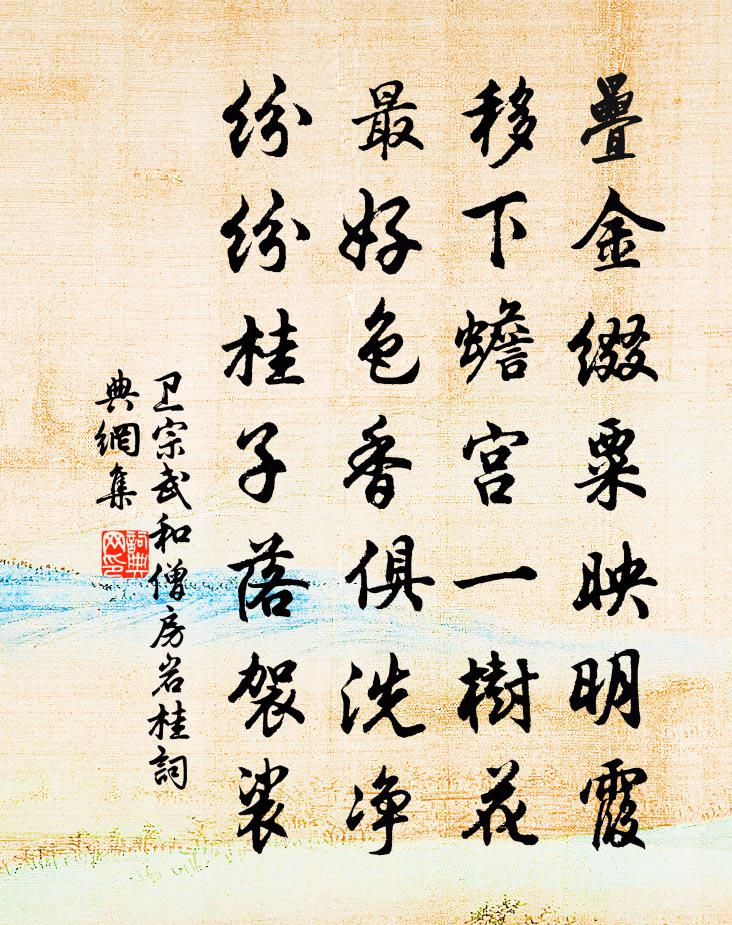 疊金綴粟映明霞
移下蟾宮一樹花
最好色香俱洗净
紛紛桂子落袈裟
卫宗武和僧房岩桂詞
典網集
詞典
网印